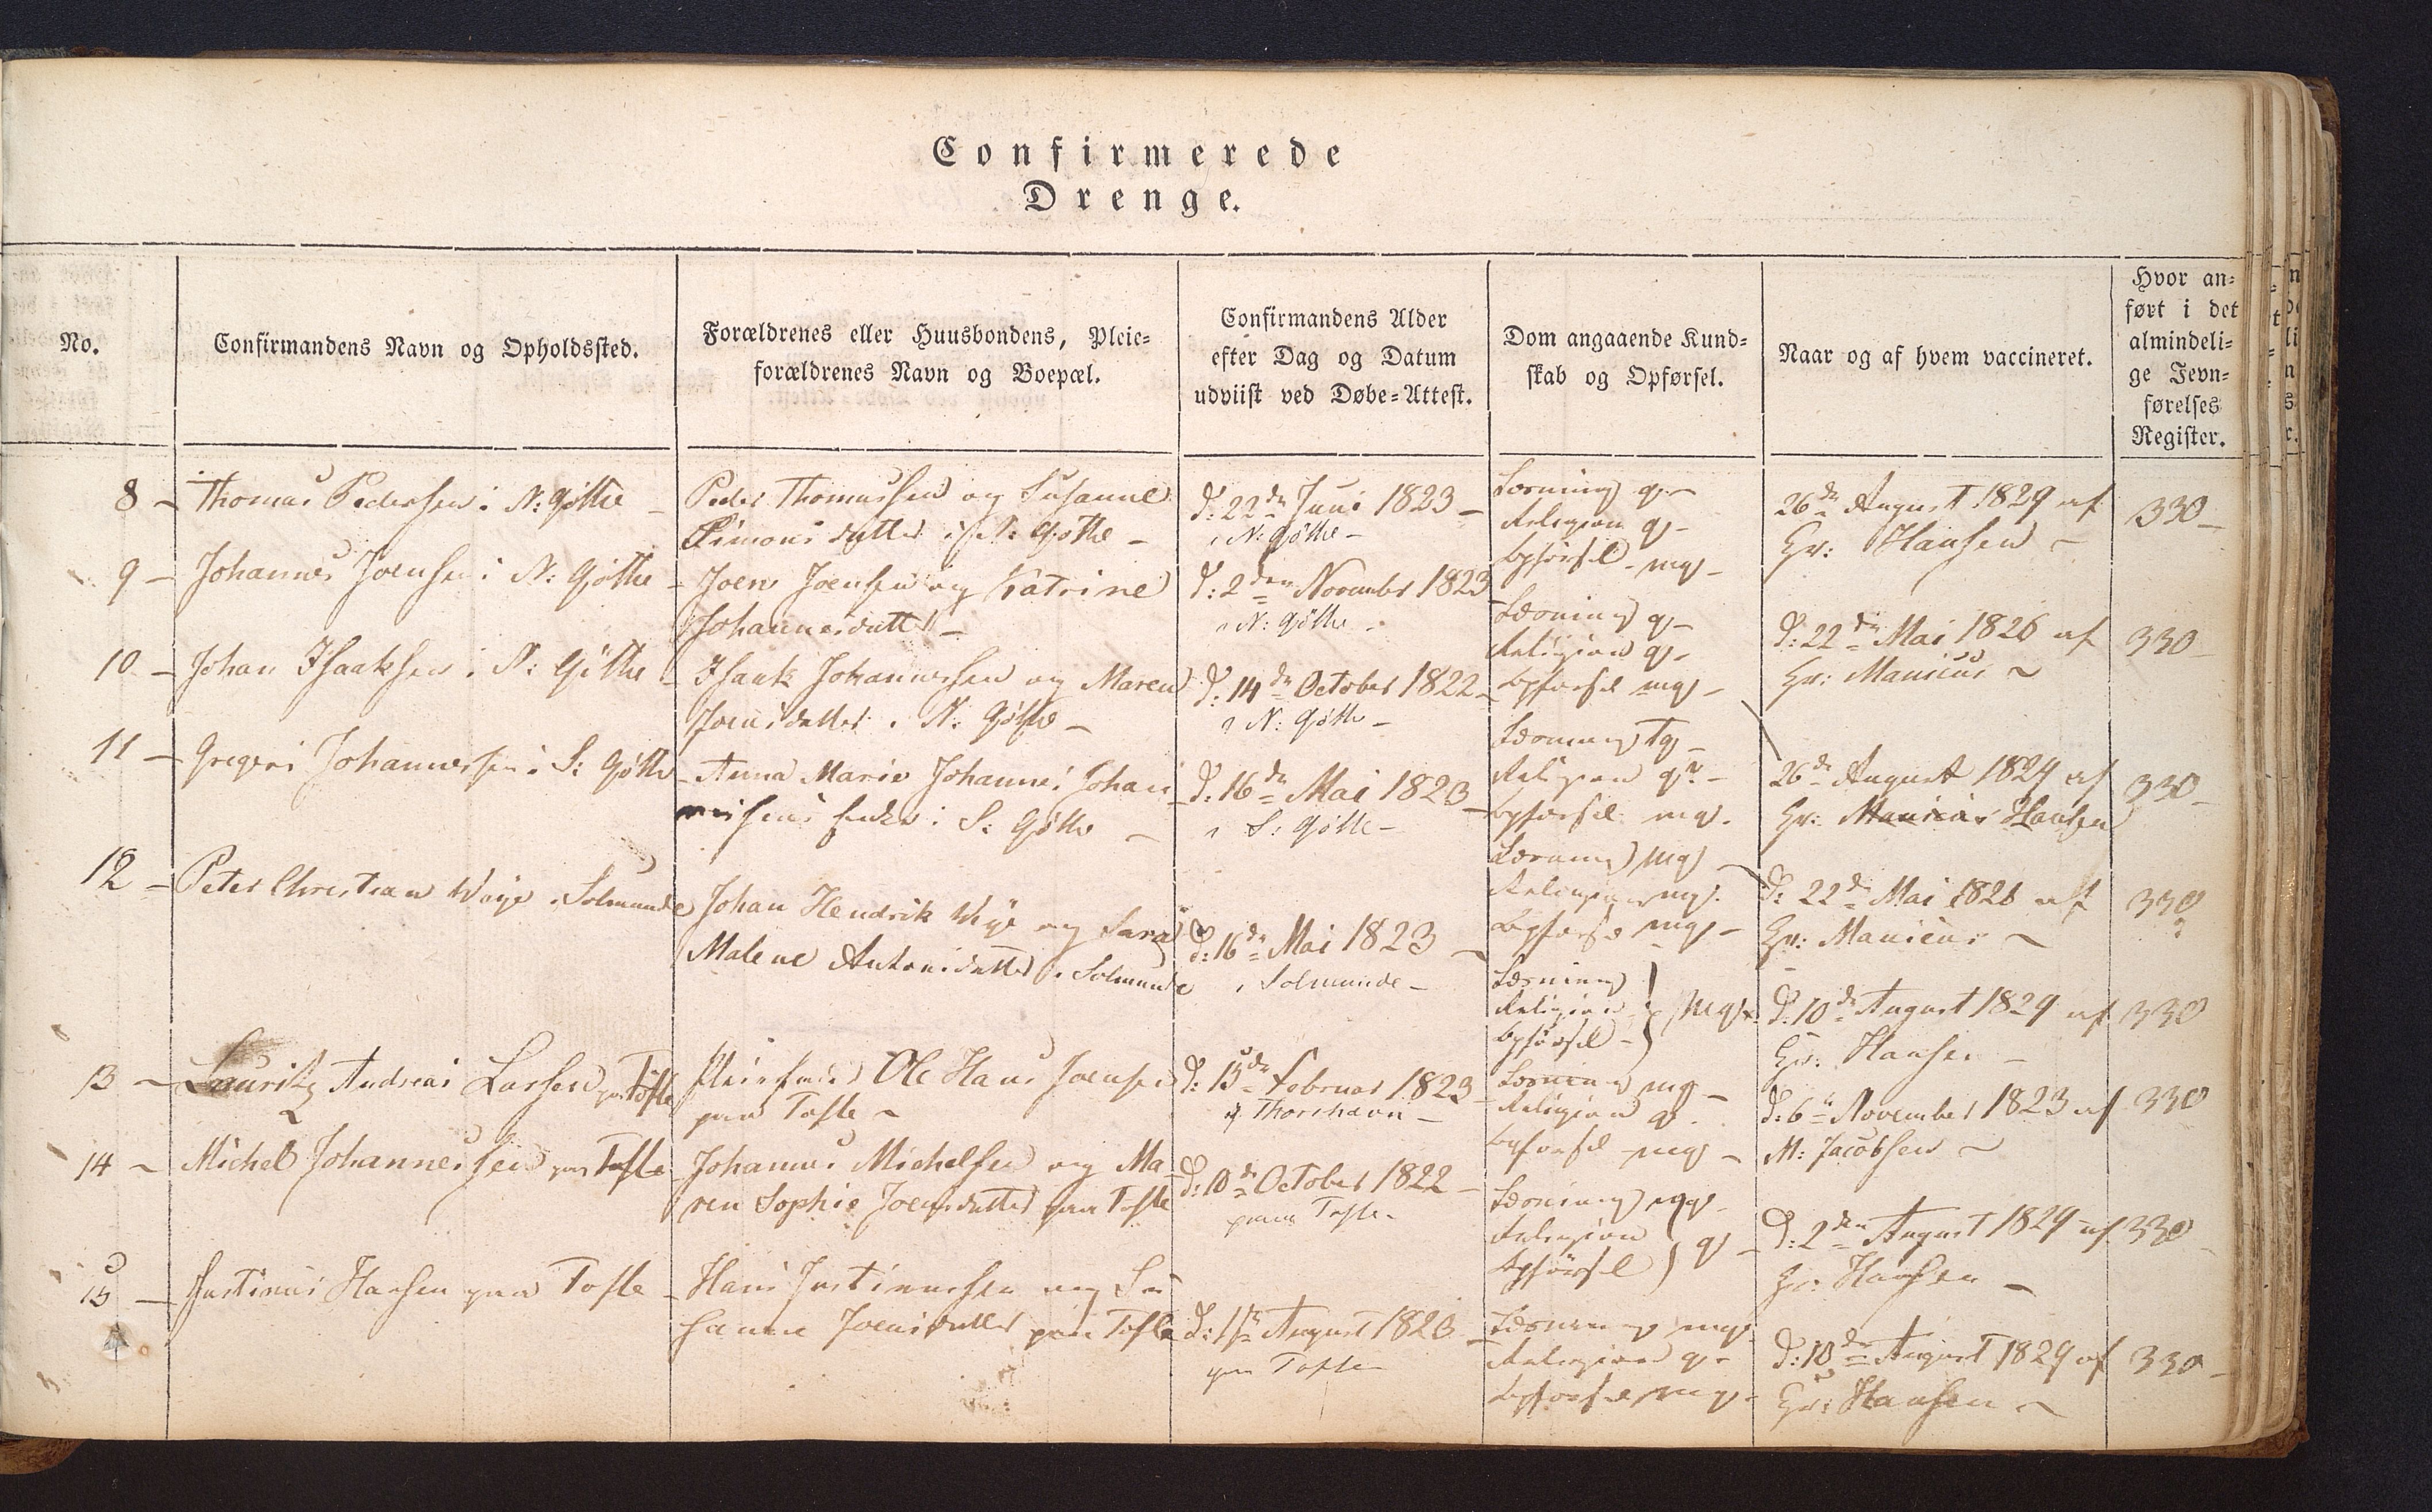 Confirmerede
Drenge.
No.
Confirmandens Navn og Opholdssted.
Forældrenes eller Huusbondens, Pleie-
forældrenes Navn og Boepæl.
Confirmandens Alder
efter Dag og Datum
udviist ved Døbe-Attest.
Dom angaaende Kund-
skab og Opførsel.
Naar og af hvem vaccineret.
Hvor an-
ført i det
almindeli-
ge Jevn-
førelses
Register.
8 - Thomas Pedersen i N: Gøthe
Peder Thomassen og Susanne
Simonsdatter i N: Gøthe -
d: 22de Juni 1823 -
i N: Gøthe -
Læsning g -
Religion g -
Opførsel - mg -
26de August 1829 af
Hr: Hansen -
330 -
9 - Johannes Joensen i N: Gøthe -
Joen Joensen og Katrine
Johannesdatter -
d: 2den November 1823
i N: Gøthe -
Læsning g -
Religion g -
Opførsel mg -
d: 22de Mai 1826 af
Hr: Manicus -
330 -
10 - Johan Isaaksen i N: Gøthe -
Isaak Johannessen og Maren
Joensdatter i N: Gøthe -
d: 14de October 1822 -
i N: Gøthe -
Læsning Tg -
Religion g? -
Opførsel mg -
26de August 1829 af
Hr: Manicus Hansen
330 -
11 - Gregers Johannessen i S: Gøthe
Anna Marie Johannes Johan
nissens Enke i S: Gøthe -
d: 16de Mai 1823 -
i S: Gøthe -
Læsning mg -
Religion mg -
Opførsel mg -
d: 22de Mai 1826 af
Hr: Manicus -
330
12 - Peter Christian Weye i Solmunde
Johan Hendrik Weye og Sara
Malene Antonisdatter i Solmunde
d: 16de Mai 1823 -
i Solmunde -
Læsning
Religion mg
Opførsel -
d: 10de August 1829 af
Hr: Hansen -
330
13 - Lauritz Andreas Larsen paa Tofte
Pleiefader Ole Hans Joensen
paa Tofte -
d: 15de Februar 1823 -
i Thorshavn -
Læsning mg -
Religion g -
Opførsel mg -
d: 6te November 1823 af
M: Jacobsen -
330
14 - Michel Johannessen paa Tofte
Johannes Michelsen og Ma
ren Sophie Joensdatter paa Tofte
d: 10de October 1822 -
paa Tofte -
Læsning mg -
Religion
Opførsel g -
d: 2den August 1829 af
Hr: Hansen -
330
15 - Justinus Hansen paa Tofte -
Hans Justinussen og Su
sanne Joensdatter paa Tofte
d: 1ste August 1823
paa Tofte
Læsning mg -
Religion g -
Opførsel mg -
d: 10de August 1829 af
Hr: Hansen -
330 -